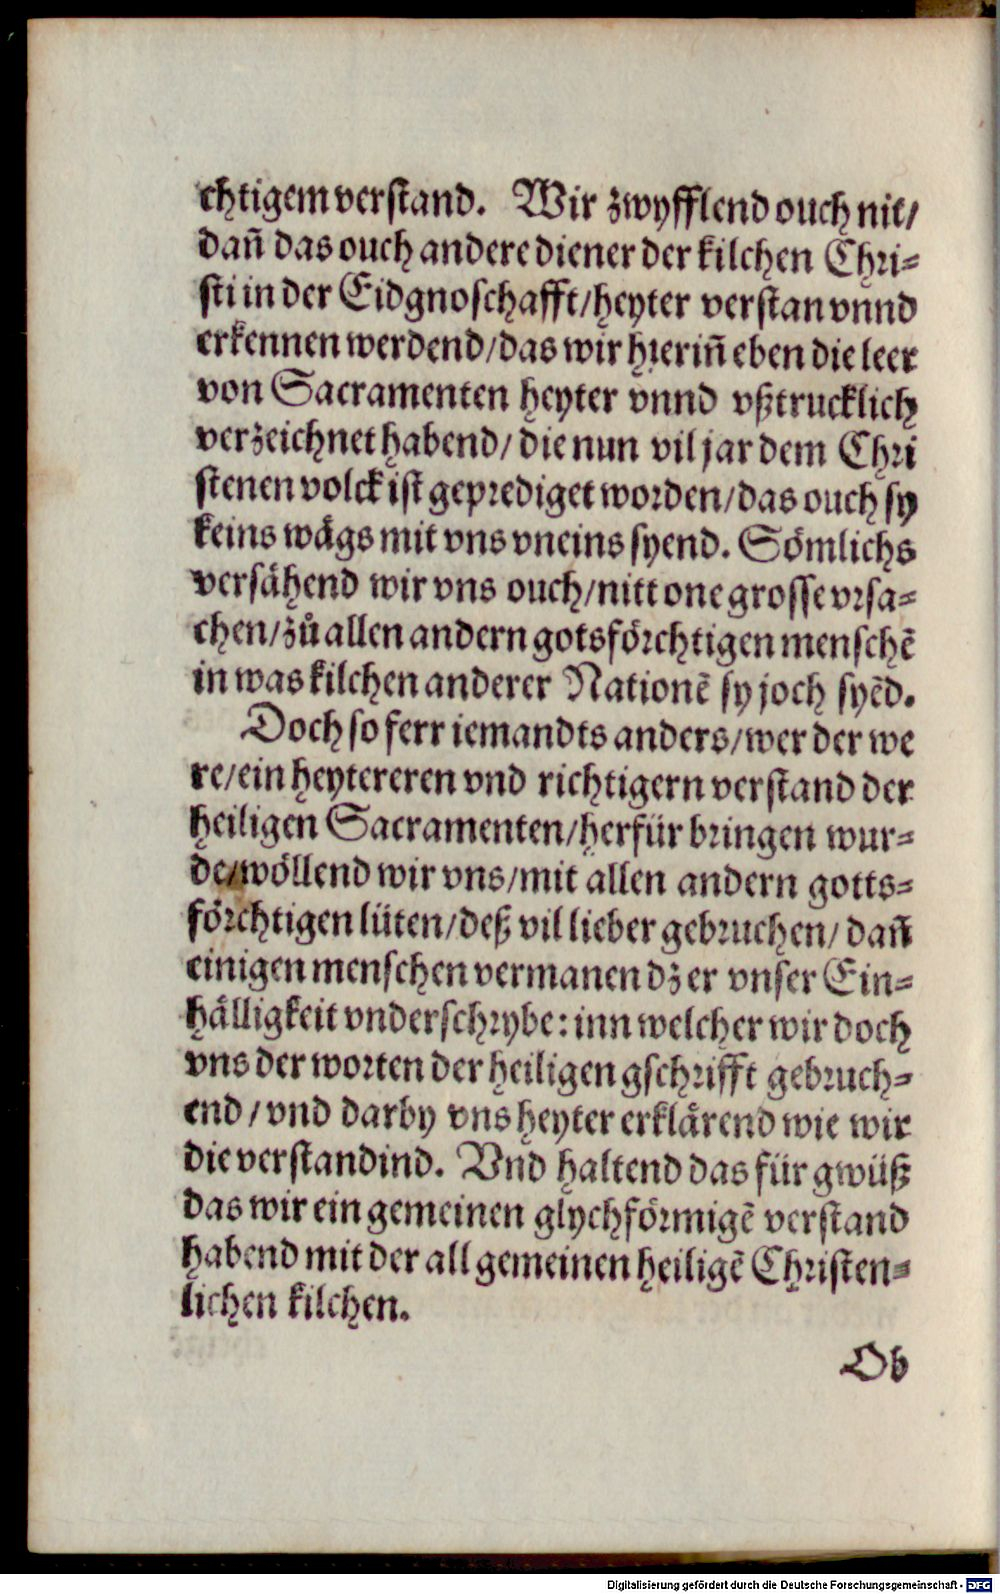 chtigem verstand. Wir zwyfflend ouch nit/
dañ das ouch andere diener der kilchen Chri⸗
sti in der Eidgnoschafft/heyter verstan vnnd
erkennen werdend/das wir hieriñ eben die leer
von Sacramenten heyter vnnd vßtrucklich
verzeichnet habend/die nun vil jar dem Chri
stenen volck ist geprediget worden/das ouch sy
keins wägs mit vns vneins syend. Sömlichs
versähend wir vns ouch/nitt one grosse vrsa⸗
chen/zů allen andern gotsförchtigen menschē
in was kilchen anderer Nationē sy joch syēd.
Doch so ferr iemandts anders/wer der we
re/ein heytereren vnd richtigern verstand der
heiligen Sacramenten/herfür bringen wur⸗
de/wöllend wir vns/mit allen andern gotts⸗
förchtigen lüten/deß vil lieber gebruchen/dañ
einigen menschen vermanen dz er vnser Ein⸗
hälligkeit vnderschrybe: inn welcher wir doch
vns der worten der heiligen gschrifft gebruch⸗
end/vnd darby vns heyter erklärend wie wir
die verstandind. Vnd haltend das für gwüß
das wir ein gemeinen glychförmigē verstand
habend mit der allgemeinen heiligē Christen⸗
lichen kilchen.
Ob
Digitalisierung gefördert durch die Deutsche Forschungsgemeinschaft - DFG